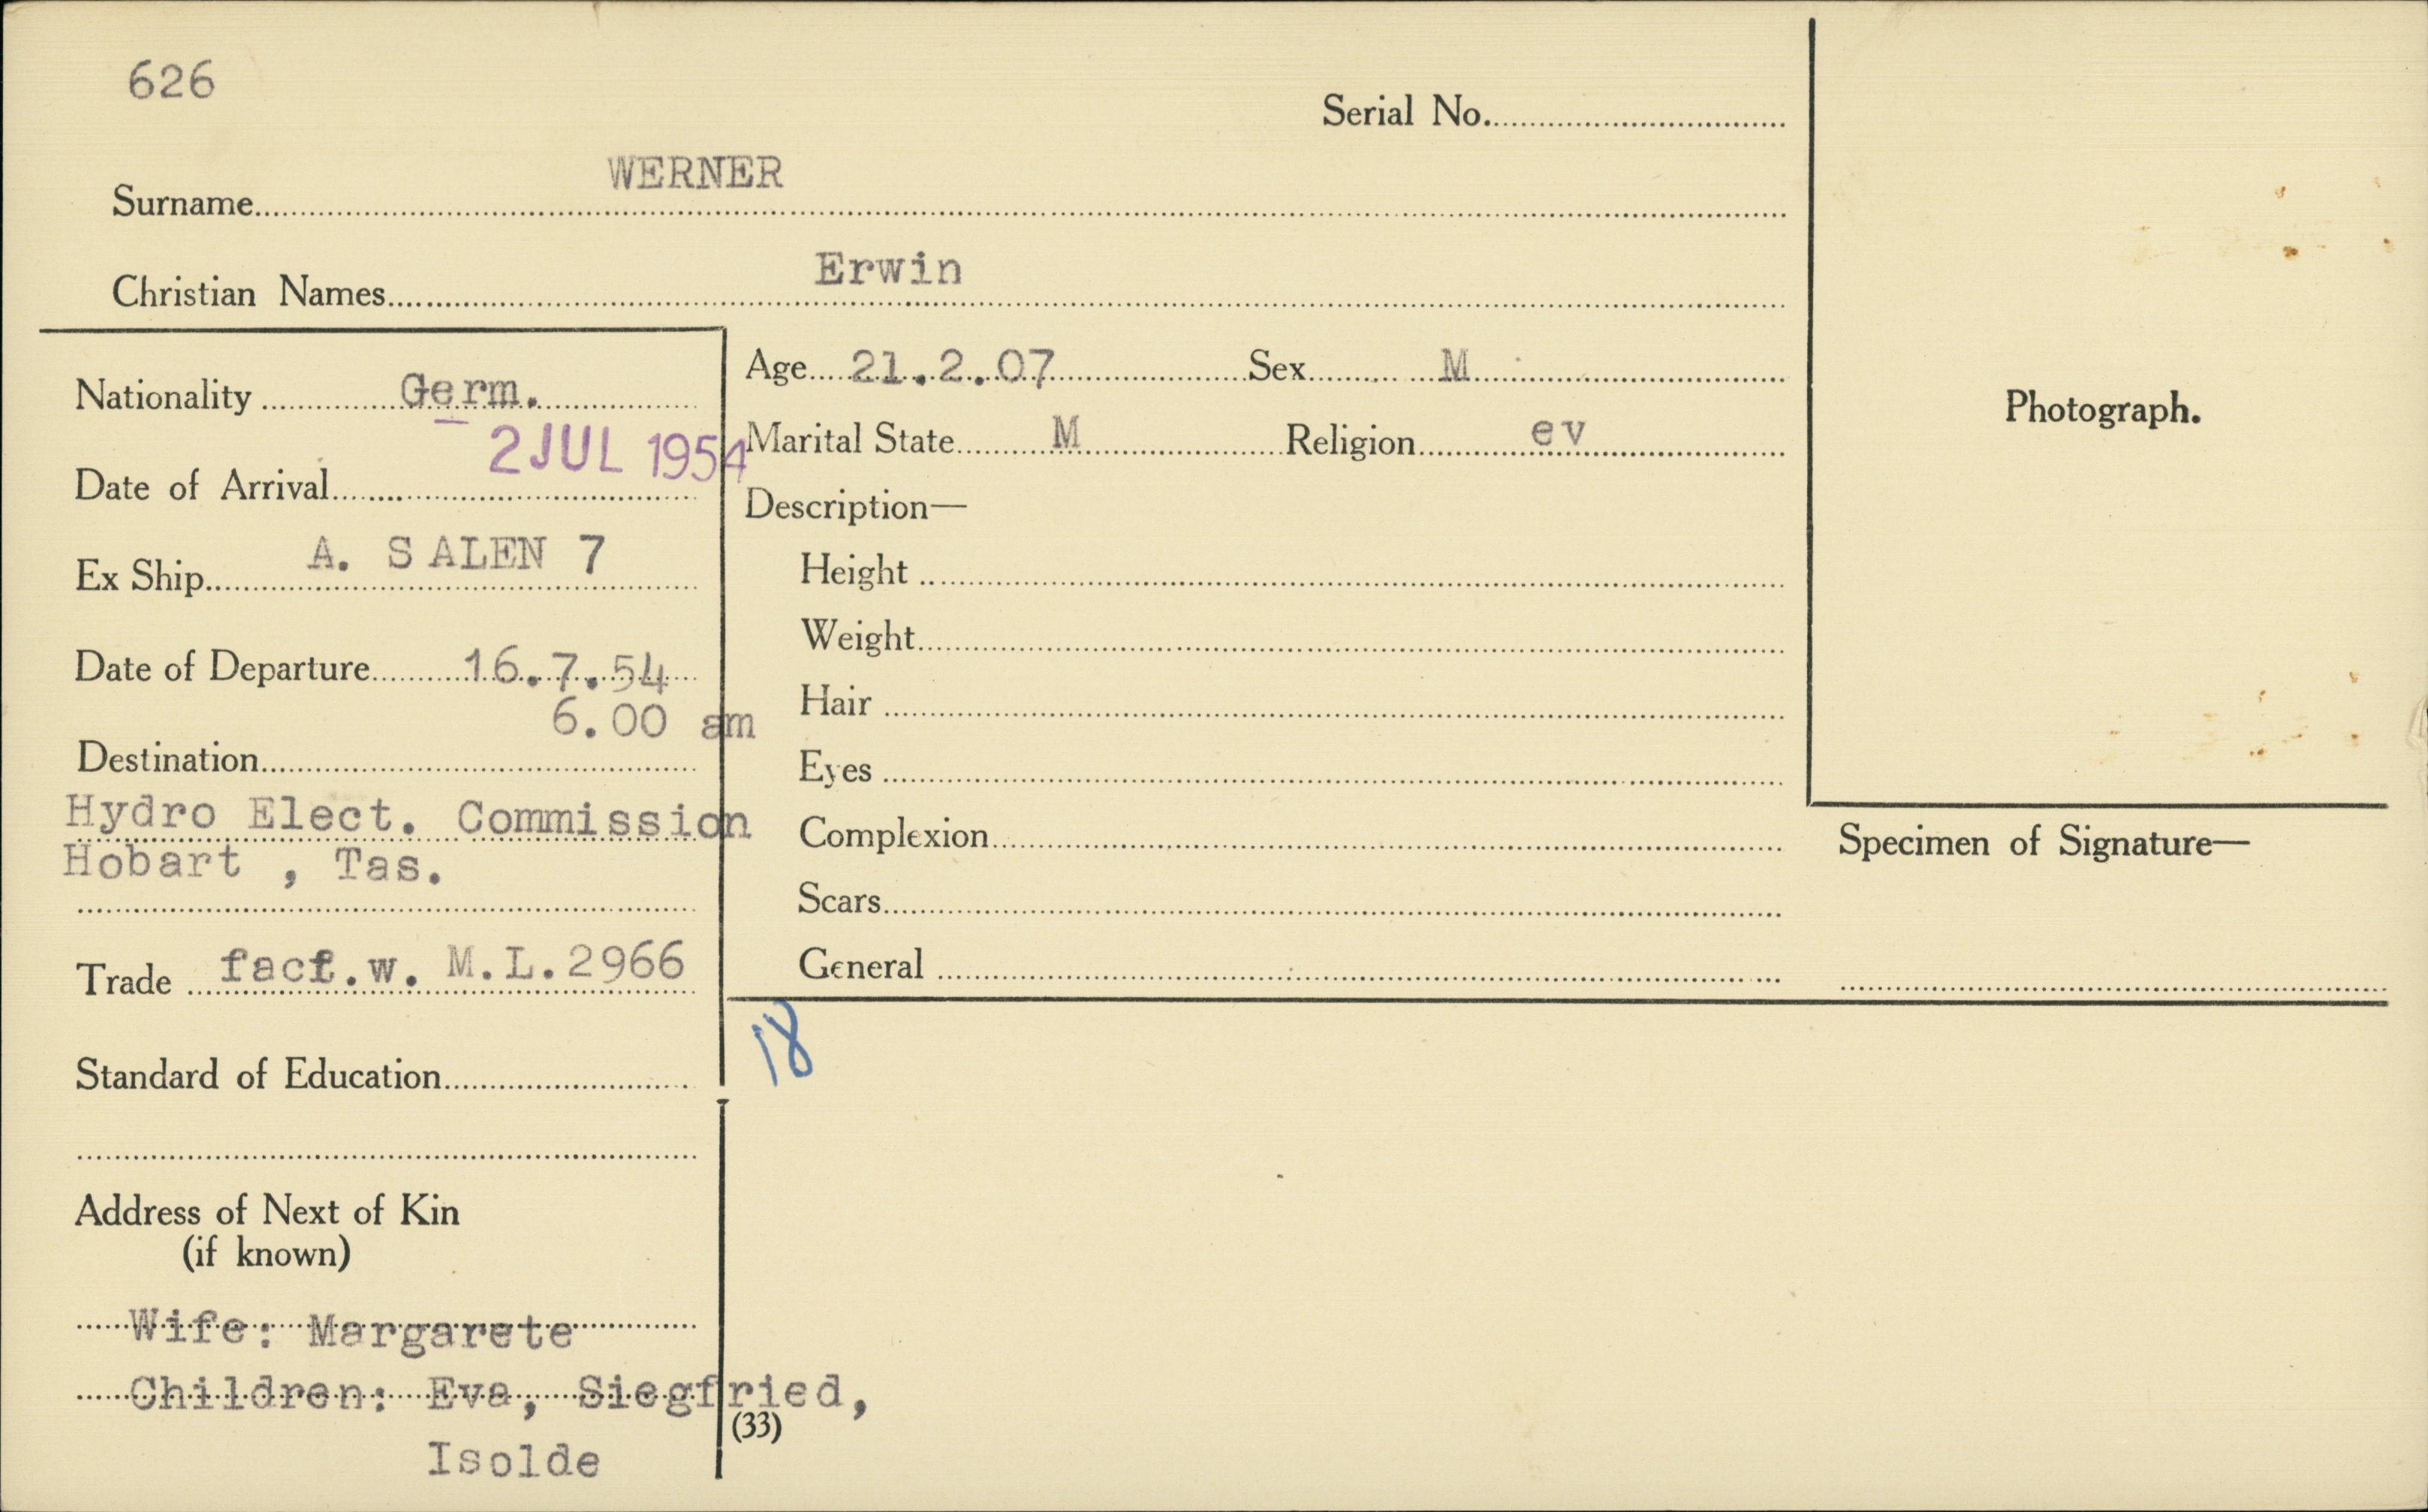 626
Serial No.
WERNER
Surname
Erwin
Christian Names
Nationality Germ.
2 JUL 1954
Date of Arrival
Ex Ship A. SALEN 7
Date of Departure 16.7.54
6.00 am
Destination
Hydro Elect. Commission
Hobart , Tas.
Trade fact.w. M.L.2966
Standard of Education
Address of Next of Kin
(if known)
Wife: Margarete
Children: Eva, Siegfried,
Isolde
Age 21.2.07 Sex M
Marital State M Religion ev
Description—
Height
Weight
Hair
Eyes
Complexion
Scars
General
18
(33)
Photograph.
Specimen of Signature—